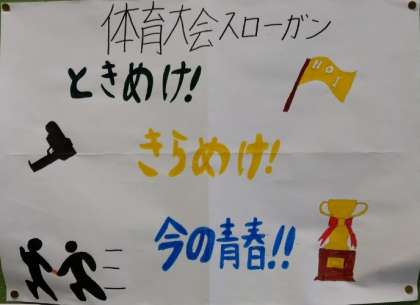 体育大会スローガン
ときめけ!
NO.1
きらめけ!
今の青春!!